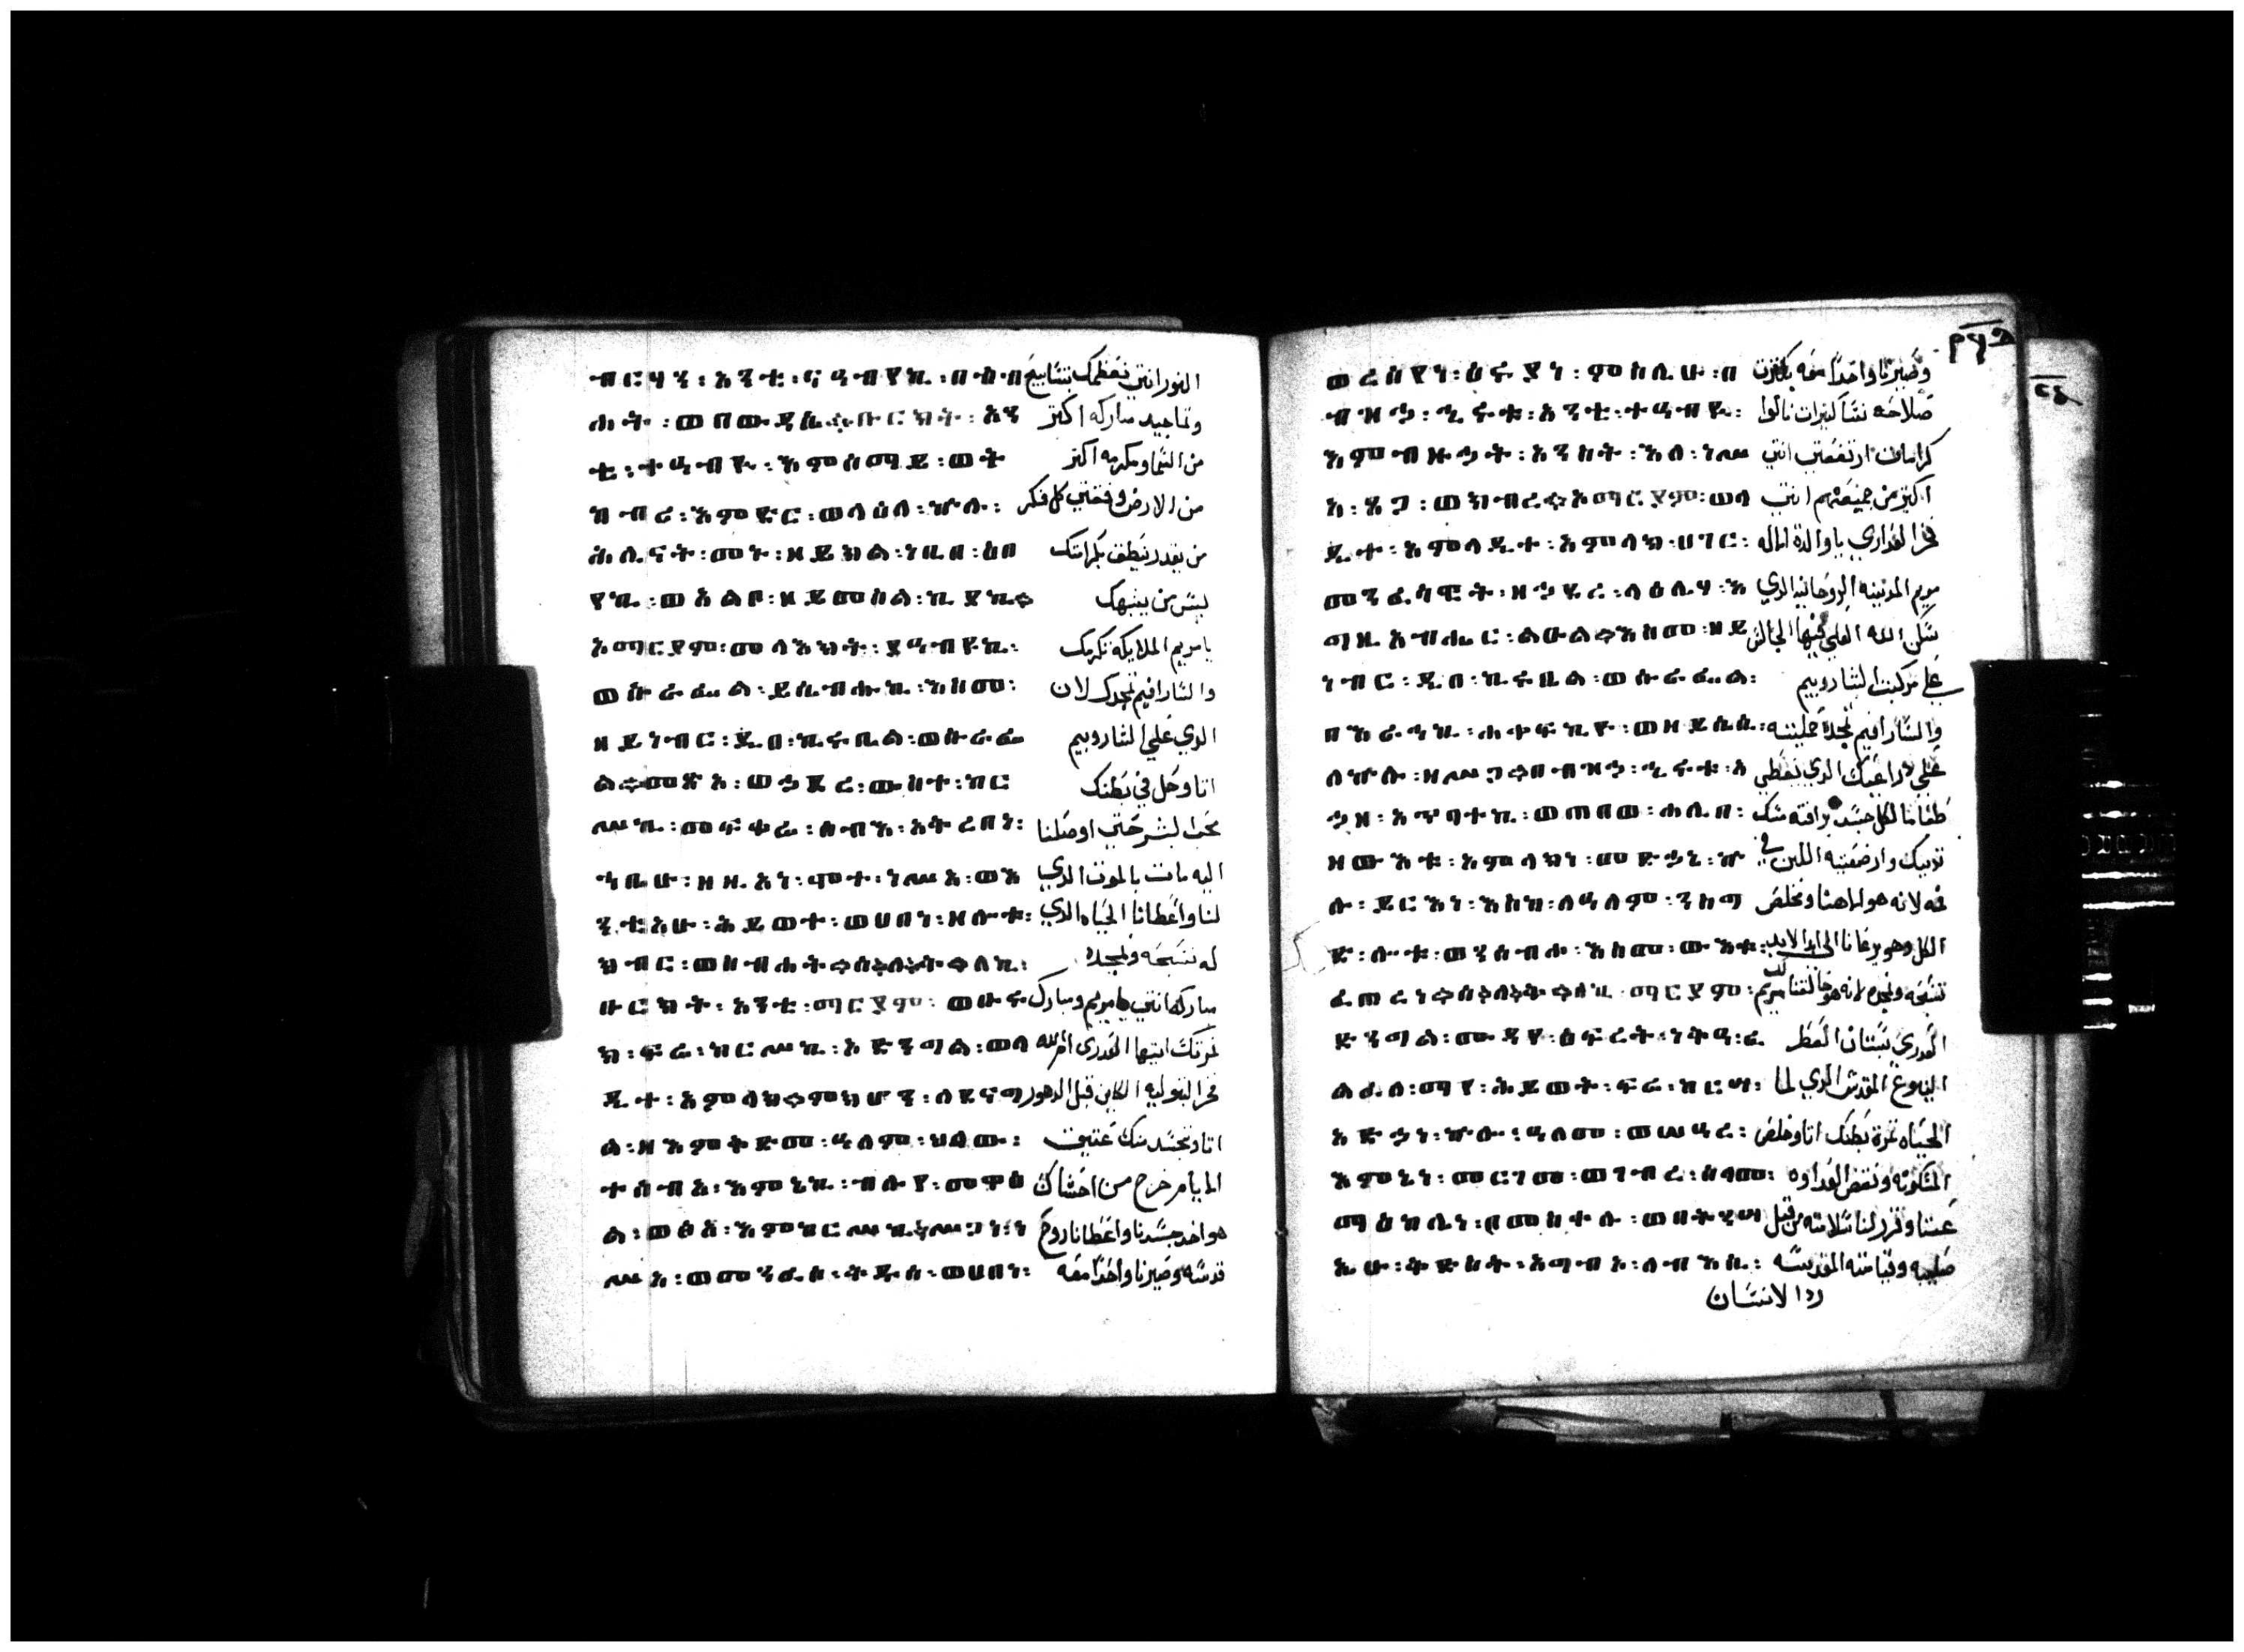 ብርሃን፡አንቲ፡ናዓብየኪ፡በስብ النورانتي نعظمك بتسابيح
ሐት፡ወበውዳሴ።ቡርክት፡አን وتماجيد مباركه اكتر
ቲ፡ተዓብዪ፡እምሰማይ፡ወት من السما ومكرمه اكتر
ከብሪ፡እምድር፡ወላዕለ፡ኵሉ፡ من الارض وفقتي كل فكر
ሕሊናት፡መኑ፡ዘይክል፡ነቢበ፡ዕበ من يقدر ينطق بكرامتك
የኪ፡ወአልቦ፡ዘይመስል፡ኪያኪ። ليس من يشبهك
አማርያም፡መላእክት፡ያዓብዩኪ፡ يا مريم الملايكه تكرمك
ወሱራፌል፡ይሴብሑኪ፡እስመ፡ والسارافيم تمجدك لان
ዘይነብር፡ዲበ፡ኪሩቤል፡ወሱራፌ الدي علي الشاروبيم
ል።መጽአ፡ወኃደረ፡ውስተ፡ከር اتا وحل في بطنك
ሥኪ፡መፍቀሬ፡ሰብእ፡አቅረበነ፡ محب البشر حتي اوصلنا
ኀቤሁ፡ዘዚአነ፡ሞተ፡ነሥአ፡ወእ اليه مات بالموت الدي
ንቲአሁ፡ሕይወተ፡ወሀበነ፡ዘሎቱ፡ لنا واعطانا الحياه الدي
ክብር፡ወስብሐት። ለኪ፡ له نسبحه ونمجده
ቡርክት፡አንቲ፡ማርያም፡ወቡሩ مباركه انتي يا مريم ومبارك
ክ፡ፍሬ፡ከርሥኪ፡አድንግል፡ወላ تمرتك ايتها العدري ام الله
ዲተ፡አምላክ።ምክሆን፡ለደናግ فخر البتوليه الكاين قبل الدهور
ል፡ዘእምቅድመ፡ዓለም፡ሀልው፡ اتا وتجسد منك عتيق
ተሰብአ፡እምኔኪ፡ብሉየ፡መዋዕ الايام خرج من احشاك
ል፡ወፅአ፡እምከርሥኪ፡ሥጋነ፡ነ هو اخد جسدنا واعطانا روح
ሥአ፡ወመንፈሰ፡ቅዱሰ፡ወሀበነ፡ قدسه وصيرنا واحدا معه
ወረሰየነ፡ዕሩያነ፡ምስሌሁ፡በ وصيرنا واحدا معه بكترت
ብዝኃ፡ሂሩቱ፡አንቲ፡ተዓብዪ፡ صلاحه نسا كتيرات نالوا
እምብዙኃት፡አንስት፡እለ፡ነሥ كرامات ارتفعتي انتي
አ፡ጸጋ፡ወክብረ።አማርያም፡ወላ اكتر من جميعهم انتي
ዲተ፡አምላዲተ፡አምላክ፡ሀገር፡ فخر العداري يا والدة الاله
መንፈሳዊት፡ዘኃደረ፡ላዕሌሃ፡እ مريم المدينه الروحانيه الدي
ግዚአብሔር፡ልዑል።እስመ፡ዘይ سكن الله العلي فيها الجالس
ነብር፡ዲበ፡ኪሩቤል፡ወሱራፌል፡ علي مركبت الشاروبيم
በእራኅኪ፡ሐቀፍኪዮ፡ወዘይሴሲ፡ والسارافيم حمليته
ለኵሉ፡ዘሥጋ።በብዝኃ፡ሂሩቱ፡አ علي دراعيك الدي يعطي
ኃዘ፡አጥባተኪ፡ወጠበወ፡ሐሊበ፡ طعاما لكل جسد برافته مسك
ዘውእቱ፡አምላክነ፡መድኃኔ፡ኵ تدييك وارضعتيه اللبن في
ሉ፡ይርእነ፡እስከ፡ለዓለም፡ንስግ فمه لانه هو الاهنا ومخلص
ድ፡ሎቱ፡ወንሰብሖ፡እስመ፡ውእቱ፡ الكل وهو يرعانا الي ابد الابد
ፈጠረነ። ማርያም፡ نسبحه ونمجده لانه هو خالقنا مريم
ድንግል፡ሙዳየ፡ዕፍረት፡ነቅዓ፡ፈ العدري بستان العطر
ልፈለ፡ማየ፡ሕይወት፡ፍሬ፡ከርሣ፡ الينبوع المقدس الدي لما
አድኃነ፡ኵሎ፡ዓለመ፡ወሠዓረ፡ الحياه تمرة بطنك اتا وخلص
እምኔነ፡መርገመ፡ወገብረ፡ሰላመ፡ المسكونه ونقض العداوه
ማዕከሌነ፡በመስቀሉ፡ወበትንሣ عنا وقرر لنا سلامته من قبل
ኤሁ፡ቅድስት፡አግብአ፡ለብእሲ፡ صليبه وقيامته المقدسه
ردا الانسان